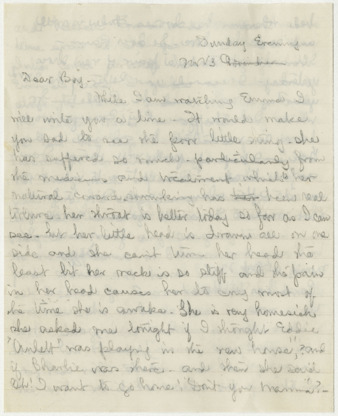 Sunday Evening
Dear Boy.
While I am watching Emma I
will write you a line. It would make
you sad to see the poor little thing. She
has suffered so much. particularly from
the medicine and treatment which her
natural has been real
torture. her throat is better today so far as I can
see. but her little head is drawn all on one
side and she can't turn her head the
least bit her neck is so stiff and the pain
in her head causes her to cry most of
the time she is awake. She is very homesick
she asked me tonight if I thought Eddie
was playing in the new house", and
if Charlie was there. and then she said
"Oh! I want to go home! Don't you Mamma"?